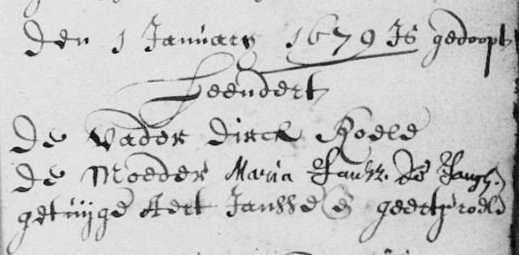 den 1 Januarÿ 1679 Is gedoopt
Leendert
de vader dirck Roele
de Moeder Maria Jansz. de
getuijge Aert Jansse &